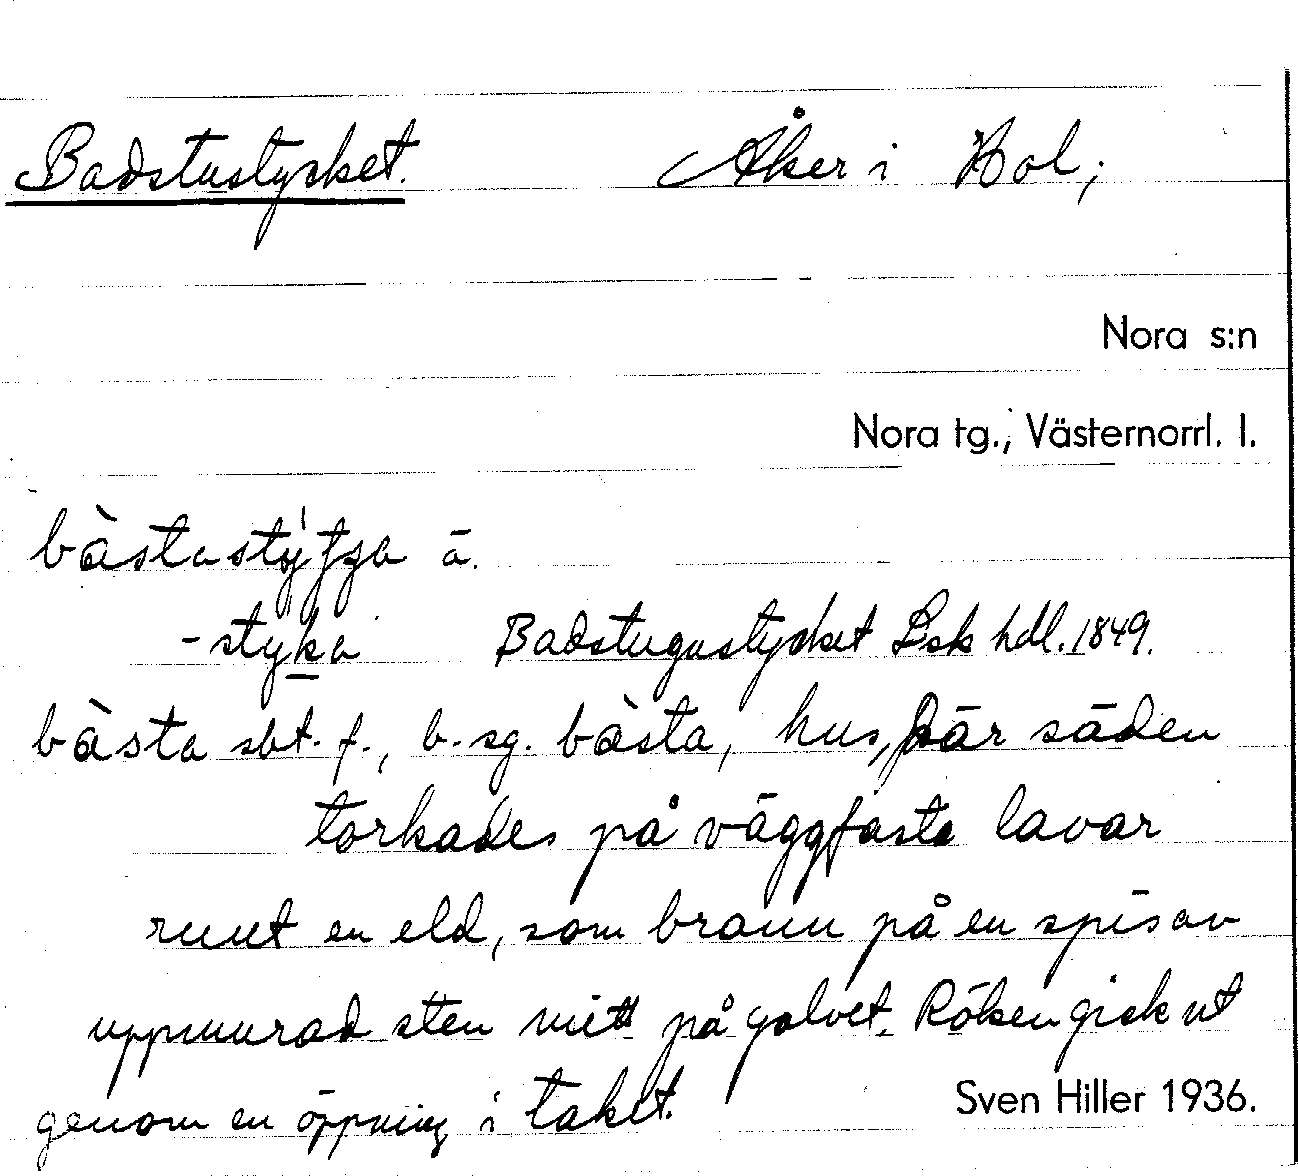 Badstustycket. Åker i Hol;
Nora s:n
Nora tg., Västernorrl. l.
bàstastỳtja ā.
-styka Badstugustycket Lsk hdl. 1849.
bàsta sbt. f., b. sg. bàsta, hus, där säden
torkades på väggfasta lavar
runt en eld, som brann på en spis av
uppmurad sten mitt på golvet. Röken gick ut
genom en öppning i taket.
Sven Hiller 1936.